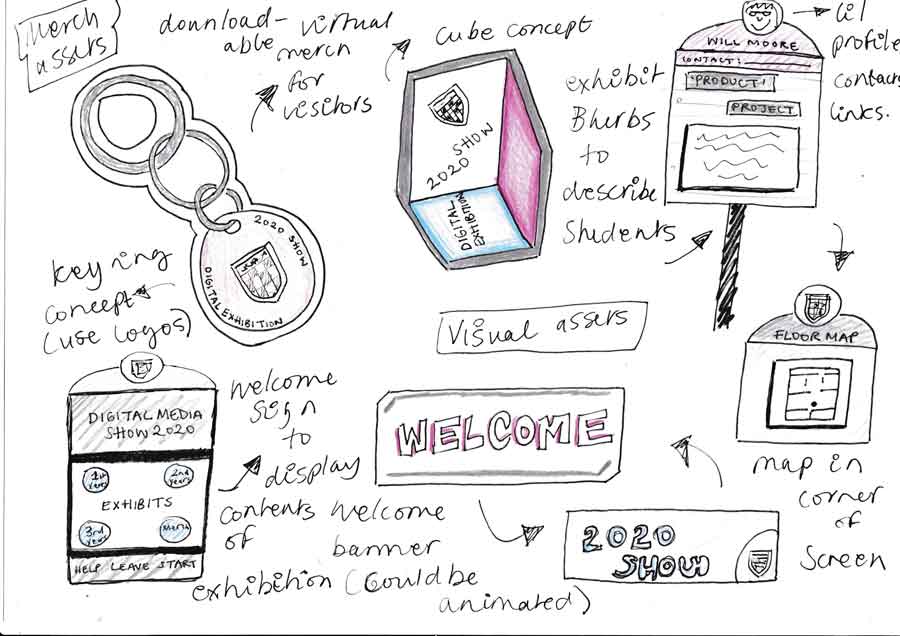 Merch
assets
download-
able
virtual
merch
for
visitors
cube concept
2020 SHOW
DIGITAL
EXHIBITION
exhibit
Blurbs
to
describe
Students
WILL MOORE
CONTACT:
PRODUCT!
PROJECT
lil
profile
contacts
links.
2020 SHOW
DIGITAL EXHIBITION
key ring
concept
(use logos)
Visual assets
FLOOR MAP
map in
corner
of
screen
DIGITAL MEDIA
SHOW 2020
1st years
2nd years
EXHIBITS
3rd years
Menu
HELP LEAVE START
welcome
sign
to
display
contents
of
exhibition
WELCOME
welcome
banner
(Could be
animated)
2020
SHOW